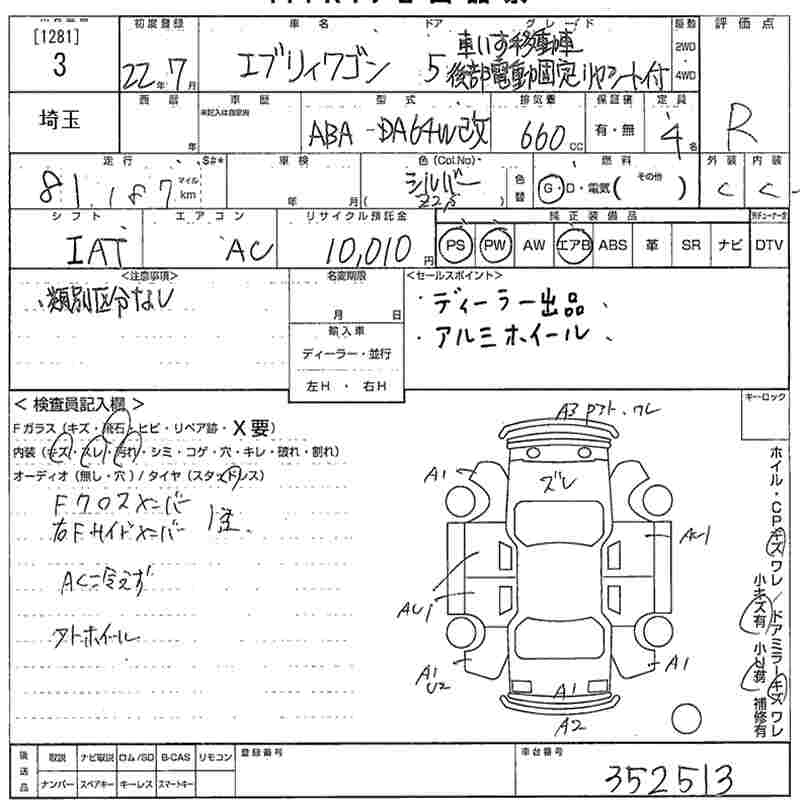 [1281]
3
初度登録
22年7月
車名
エブリィワゴン
ドア
5
グレード
車いす移動車
後部電動固定リヤシート付
駆動
2WD
4WD
評価点
R
埼玉
西暦
年
車歴
未記入は自家用
型式
ABA-DA64W改
排気量
660cc
保証書
有・無
定員
4名
走行
81,187
マイル
km
S#*
車検
年 月
色(Col.No)
シルバー
( Z2S )
色替
燃料
G・D・電気( その他 )
外装
C
内装
C
シフト
IAT
エアコン
AC
リサイクル預託金
10,010円
純正装備品
PS PW AW エアB ABS 革 SR ナビ
DTV
<注意事項>
、類別区分なし
名変期限
月 日
輸入車
ディーラー・並行
左H ・ 右H
<セールスポイント>
・ディーラー出品、
・アルミホイール、
< 検査員記入欄 >
Fガラス (キズ・飛石・ヒビ・リペア跡・X要)
内装 (キズ・スレ・汚れ・シミ・コゲ・穴・キレ・破れ・割れ)
オーディオ (無し・穴) / タイヤ (スタッドレス)
Fクロスメンバー
右Fサイドメンバー
AC冷えず
アトホイール
キーロック
A3 ワレ
ズレ
A1
AU1
AU1
A1
U2
A1
A1
A2
ホイル・CPキズワレ / ドアミラーキズワレ
小キズ有 小凹有 補修有
後送品
取説 ナビ取説 ロム/SD B-CAS リモコン
ナンバー スペアキー キーレス スマートキー
登録番号
車台番号
352513